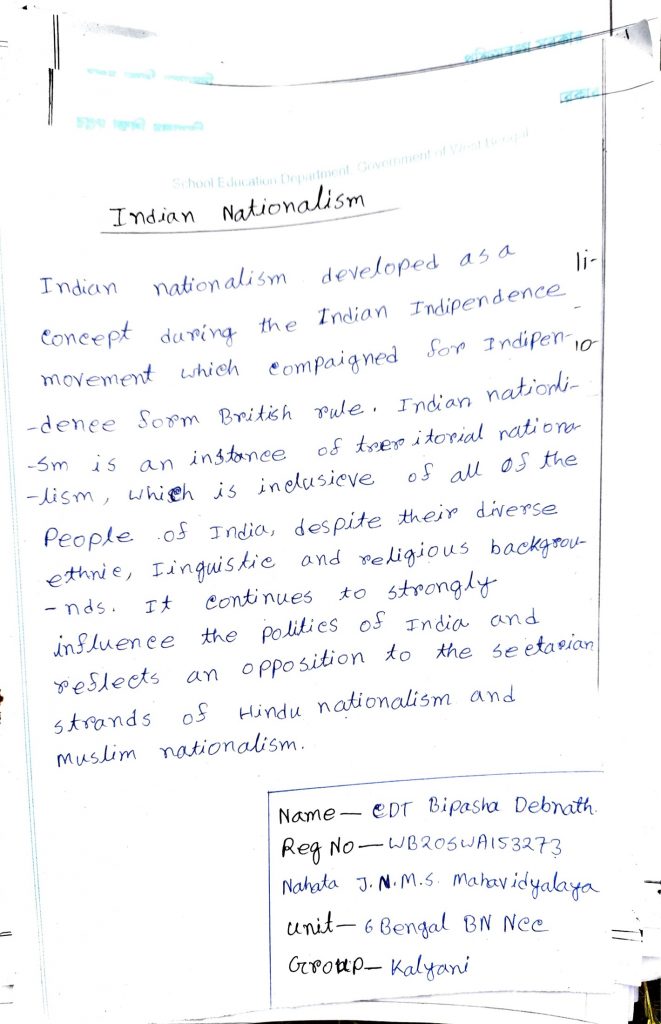 School Education Department, Government of West Bengal
Indian Nationalism
Indian nationalism developed as a
li-
concept during the Indian Indipendence
movement which compaigned for Indipen-
10-
-dence form British rule. Indian nationli-
-sm is an instance of treritorial nationa-
-lism, which is inclusieve of all of the
People of India, despite their diverse
ethnic, Iinguistic and religious backgrou-
-nds. It continues to strongly
influence the politics of India and
reflects an opposition to the sectarian
strands of Hindu nationalism and
Muslim nationalism.
Name — CDT Bipasha Debnath.
Reg No — WB20SWA153273
Nahata J.N.M.S. Mahavidyalaya
Unit — 6 Bengal BN NCC
Group — Kalyani